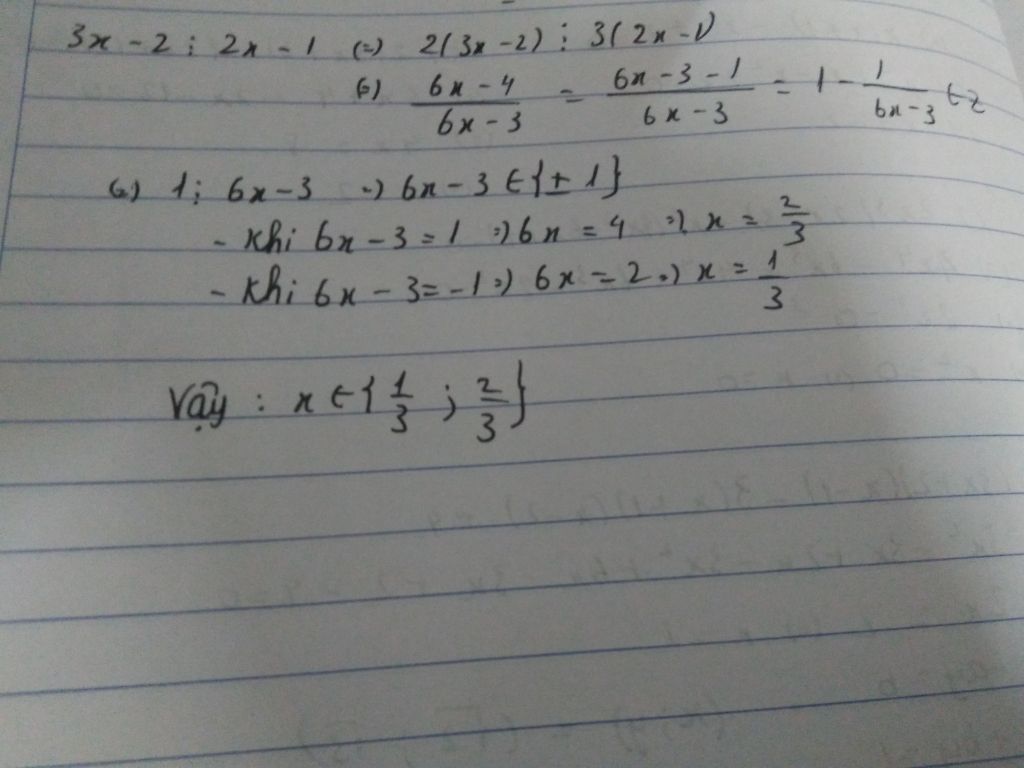 3x - 2 ⋮ 2x - 1 (=) 2(3x - 2) ⋮ 3(2x - 1)
(=) \frac{6x - 4}{6x - 3} = \frac{6x - 3 - 1}{6x - 3} = 1 - \frac{1}{6x - 3} ∈ Z
(=) 1 ⋮ 6x - 3 => 6x - 3 ∈ {± 1}
- Khi 6x - 3 = 1 => 6x = 4 => x = \frac{2}{3}
- Khi 6x - 3 = -1 => 6x = 2 => x = \frac{1}{3}
Vậy : x ∈ {\frac{1}{3} ; \frac{2}{3}}